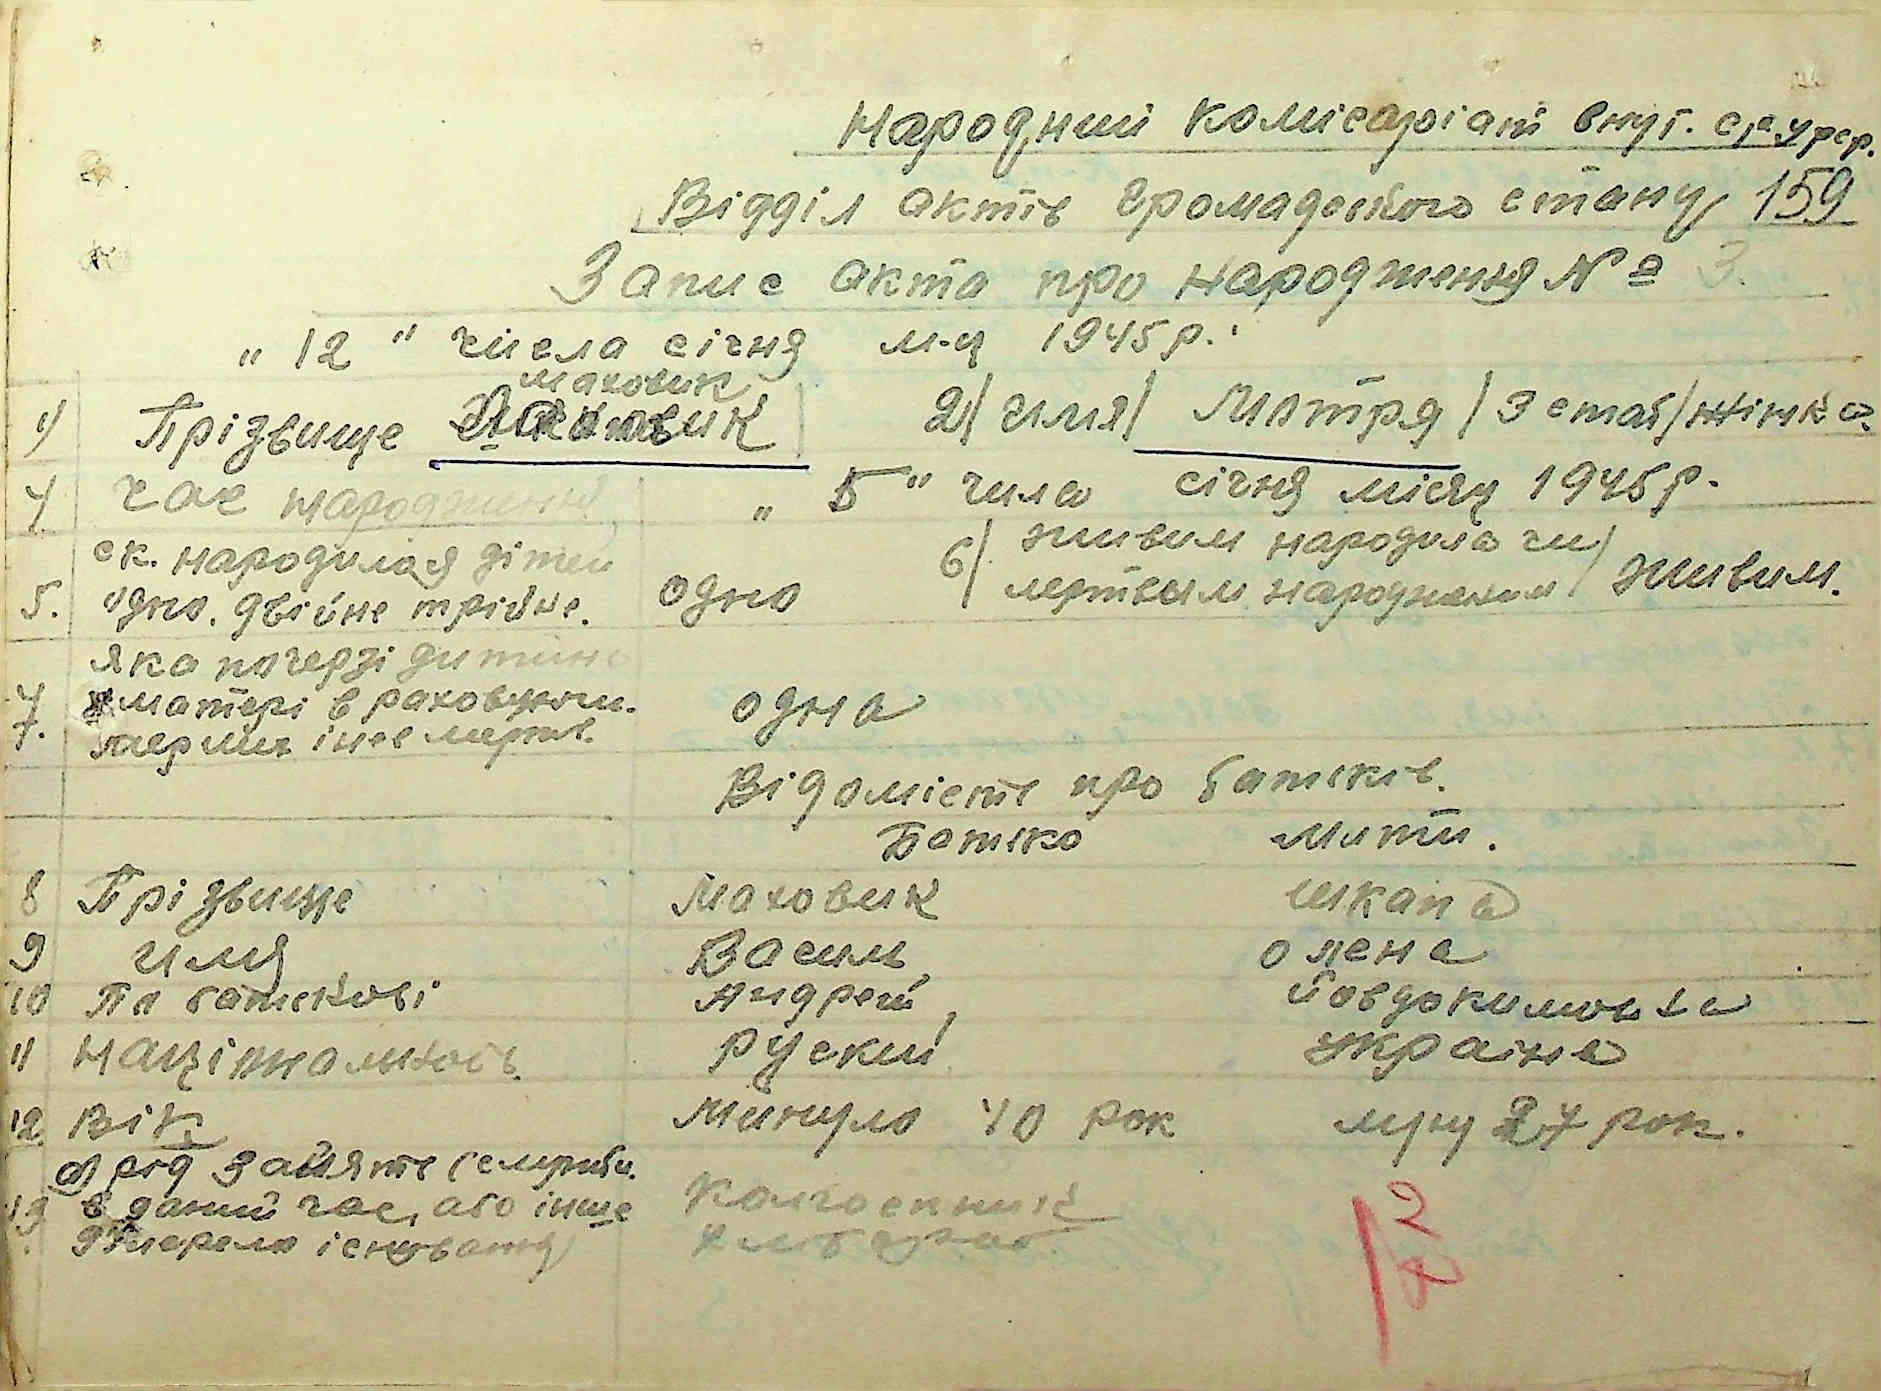 Народний Комісаріат внут. спр. урср.
Відділ актів громадського стану 159
Запис акта про народження № 3.
" 12 " числа січня м-ц 1945 р.
Маховик
1/ Прізвище Маховик 2/ имя/ Мотря / 3 стать/ жінка.
4 час народження " 5 " числа січня місяц 1945 р.
5. ск. народилася дітей одно. двійне трійне. одно 6/ живим народила чи мертвым народженим / живим.
7. яка по черзі дитина
у матері враховуючи. одна
померлих і не мертв.
Відомість про батьків.
Батько Мати.
8 Прізвище Маховик Шкапа
9 имя Василь Олена
10 По батькові Андрей Йовдокимовна
11 Національность Руский Україна
12. Вік Минуло 40 рок мину 27 рок.
а) род заняте (служби.
13. в даний час, або інше Колгоспник
джерело існування хлібороб
27